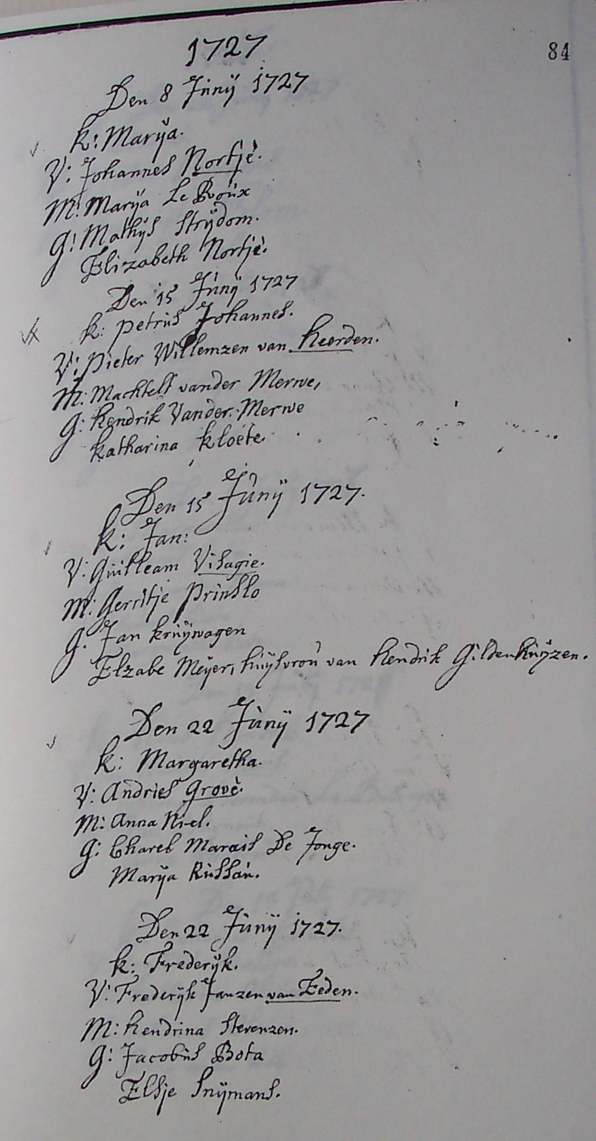 1727
84
Den 8 Junÿ 1727
k: Marÿa.
V: Johannes Nortjé.
M: Marÿa Le Roúx
G: Mathÿs Strÿdom.
Elizabeth Nortjé.
Den 15 Júnÿ 1727
k: Petrús Johannes.
V: Pieter Willemzen van heerden.
M: Machtelt vander Merwe,
G: hendrik Vander Merwe
katharina kloete.
Den 15 Júnÿ 1727.
k: Jan:
V: Guilleam Visagie.
M: Gerritje Prinslo
G. Jan krúÿwagen
Elzabe Meÿer, húÿsvroú van hendrik Gildenhúÿzen.
Den 22 Júnÿ 1727
k: Margaretha.
V: Andries Grové.
M: Anna
G: Charel Marais De Jonge.
Marÿa
Den 22 Júnÿ 1727.
k: Frederÿk.
V: Frederÿk Janzen van Eeden.
M: hendrina Stevenzen.
G: Jacobús Bota
Elsje Snÿmans.